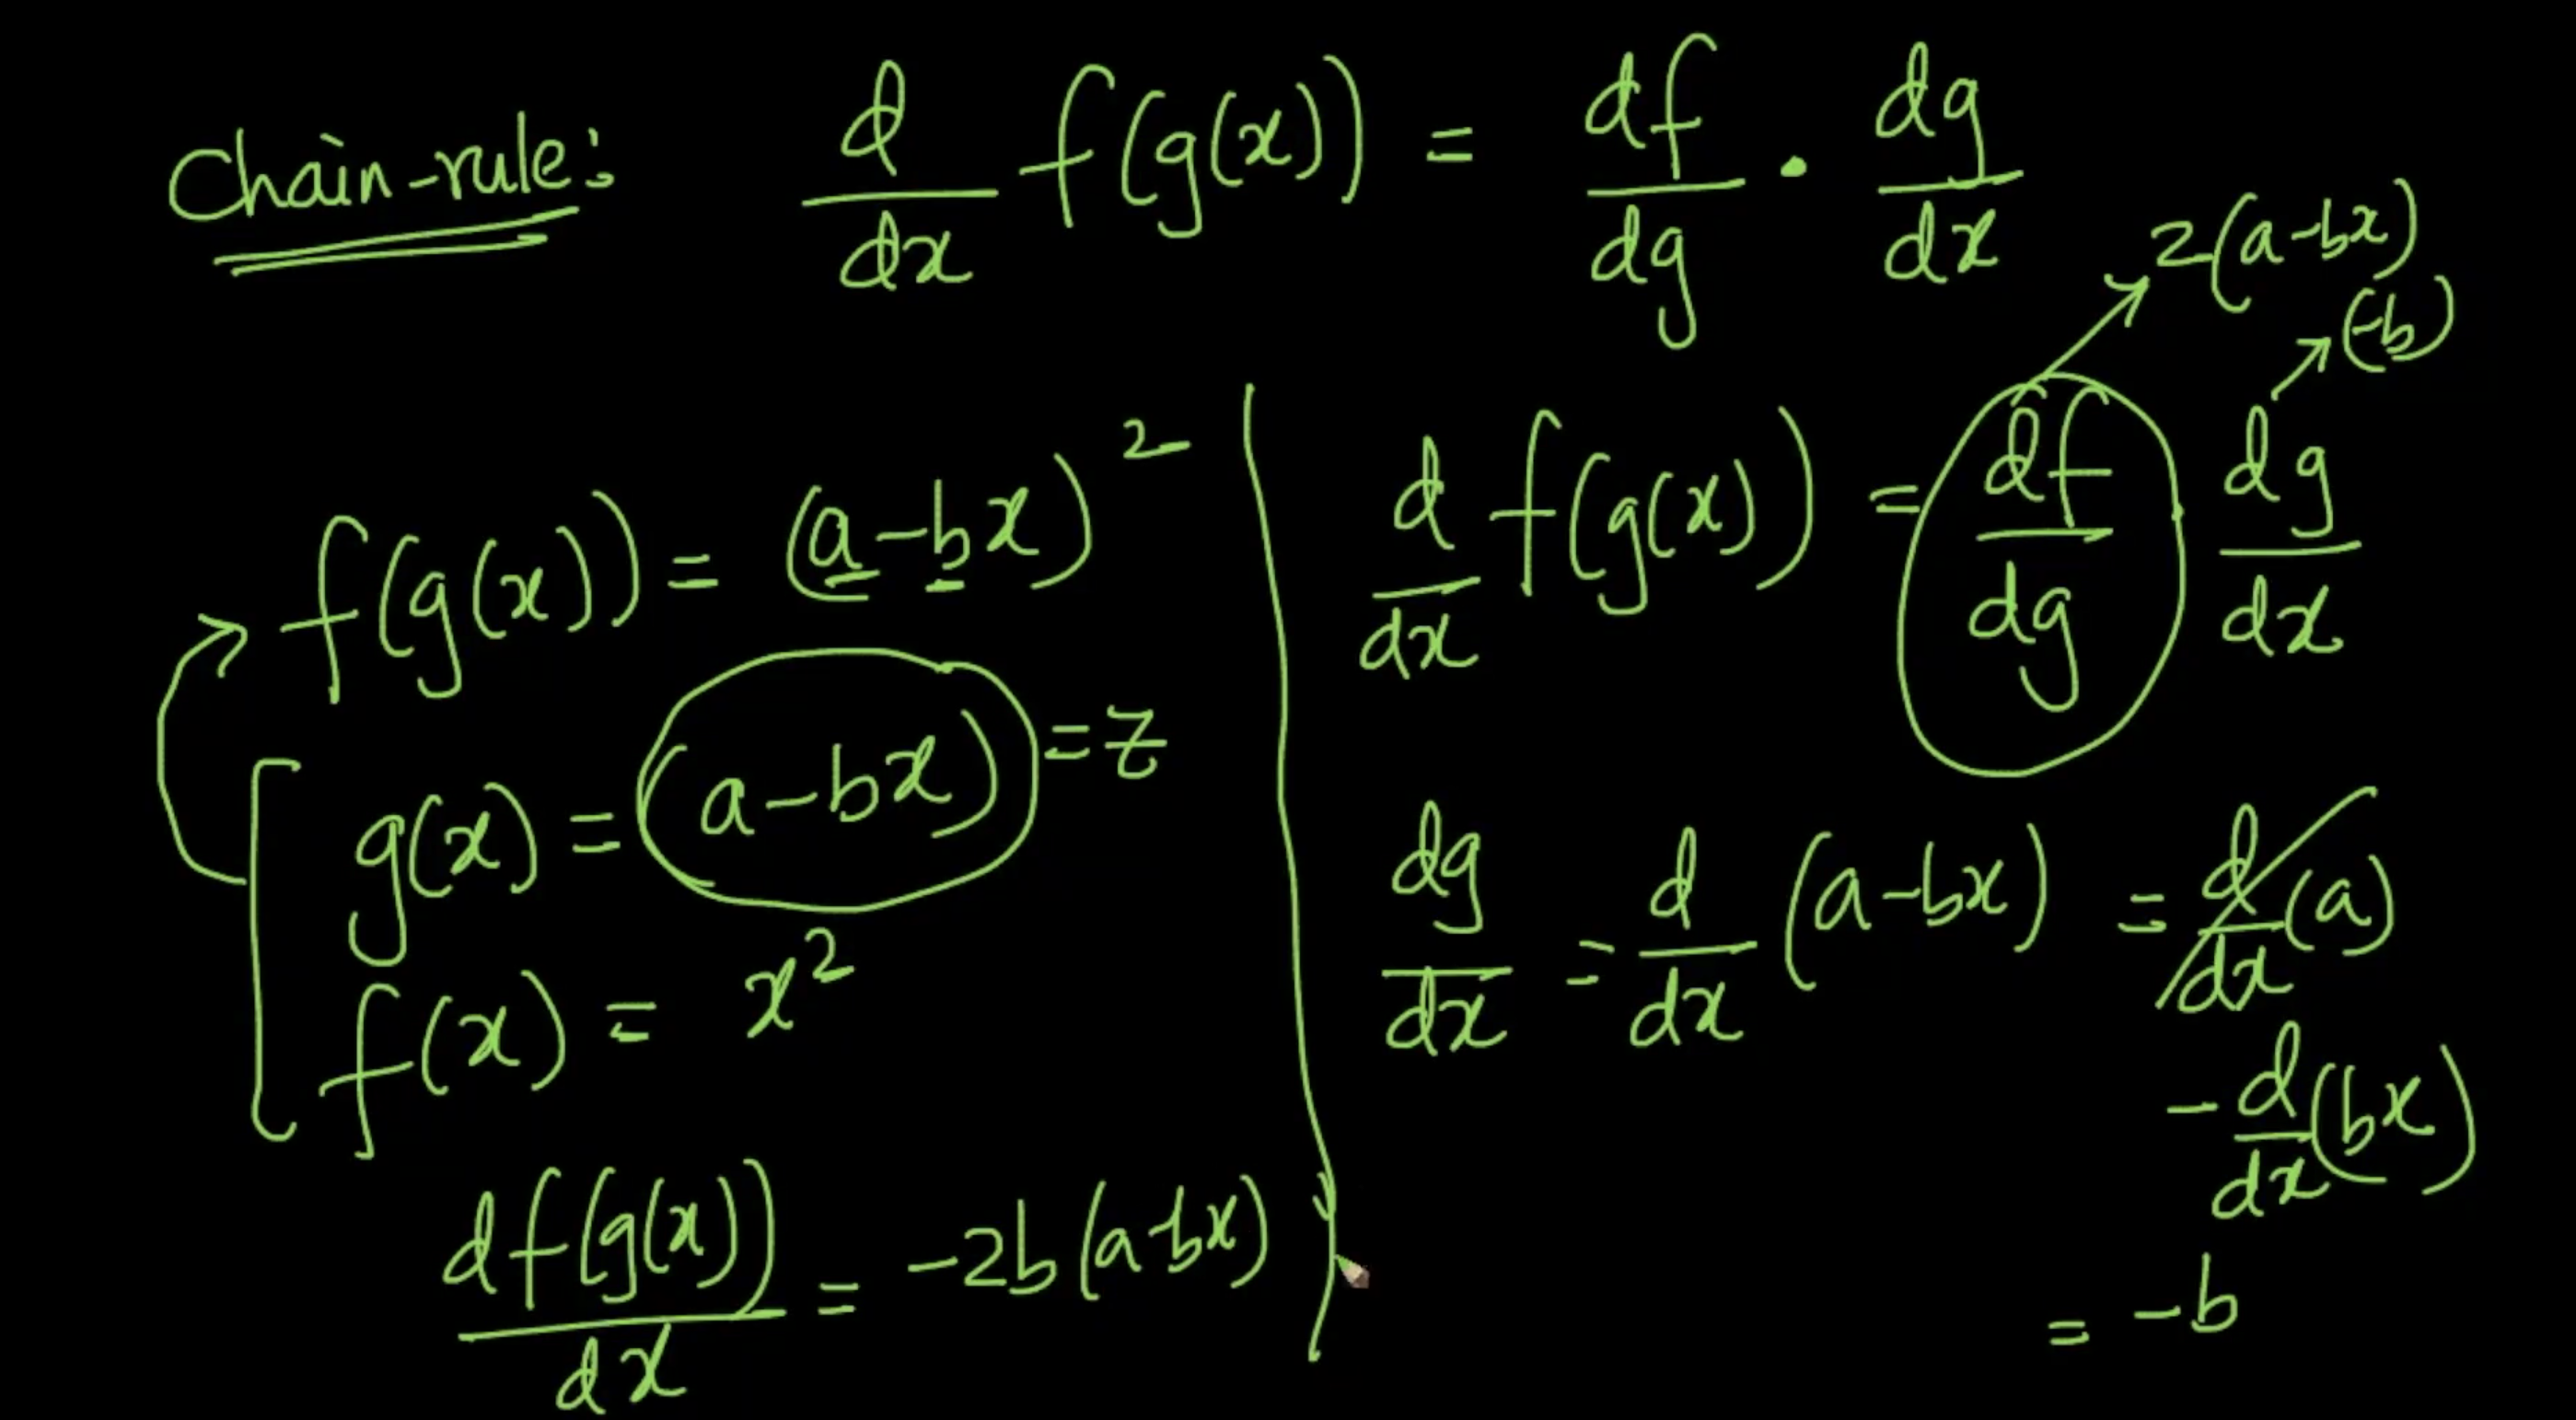 Chain-rule: d/dx f(g(x)) = df/dg · dg/dx
f(g(x)) = (a-bx)^2
g(x) = (a-bx) = z
f(x) = x^2
df(g(x))/dx = -2b(a-bx)
2(a-bx)
(-b)
d/dx f(g(x)) = df/dg dg/dx
dg/dx = d/dx (a-bx) = d/dx (a)
- d/dx (bx)
= -b